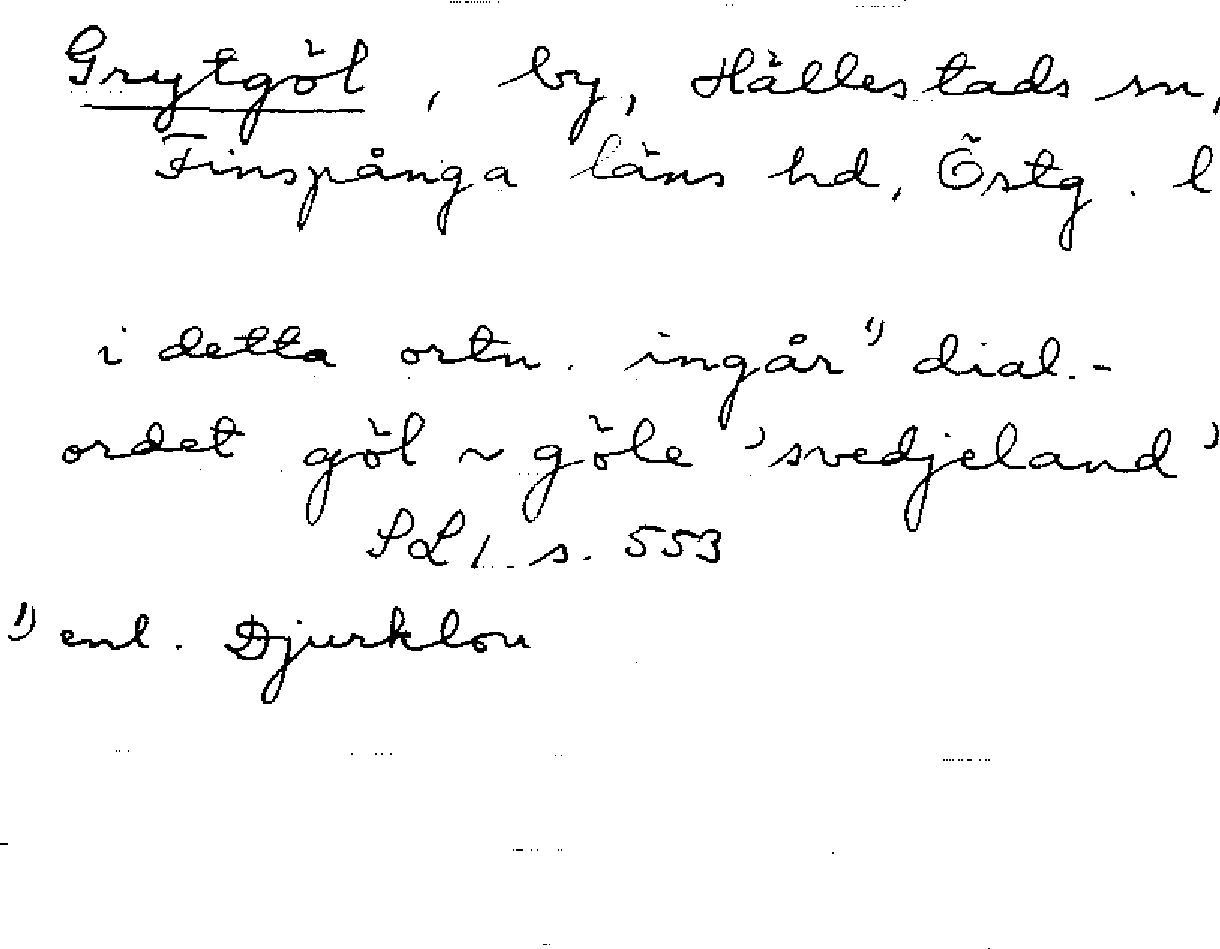 Grytgöl, by, Hällestads sn,
Finspånga läns hd, Östg. l
i detta ortn. ingår ¹) dial.-
ordet göl ~ göle 'svedjeland'
SL 1 s. 553
¹) enl. Djurklou